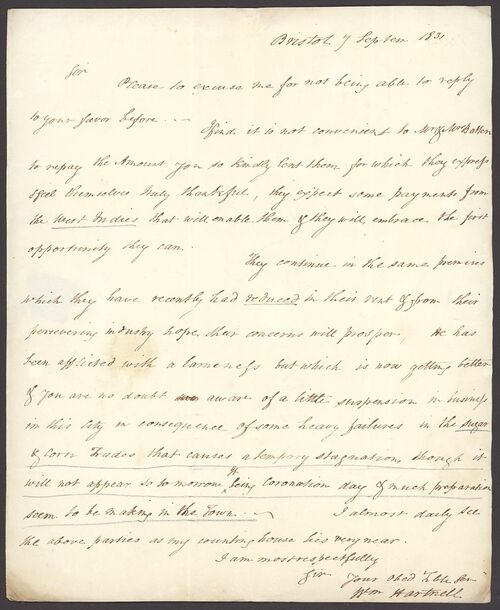 Bristol 7 Septem 1831
Sir
Please to excuse me for not being able to reply
to your favor before. . ~ I find it is not convenient to Mr & Mrs Batten
to repay the Amount you so kindly lent them for which they express
& feel themselves truly thankful, they expect some payments from
the West Indies that will enable them & they will embrace the first
opportunity they can.
They continue in the same premises
which they have recently had reduced in their rent & from their
persevering industry hope their concerns will prosper, He has
been afflicted with a lameness but which is now getting better
& you are no doubt aware of a little suspension in business
in this City in consequence of some heavy failures in the sugar
& corn Trades that causes a tempory stagnation, though it
will not appear so to morrow it being coronation day & much preparation
seem to be making in the Town. . ~ I almost daily see
the above parties as my counting house lies very near.
I am most respectfully
Sir Your Obed Hble Ser
Wm Hartnell